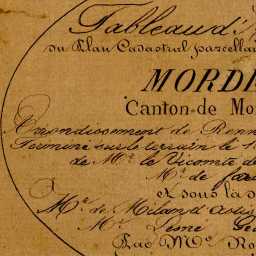 Tableau d'
du Plan Cadastral parcellai
MORDE
Canton de Mo
Arrondissement de Renn
Terminé sur le terrain le 1
de Mr. le Vicomte de
Mr. de
et sous la d
Mr. de Milan d'Astis
Mr.
Par Mr. Ro